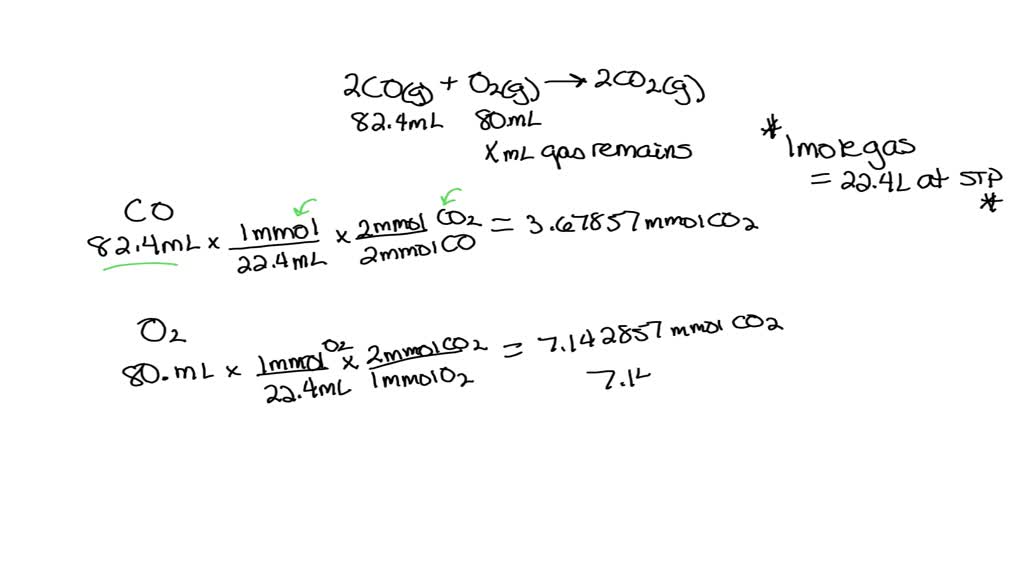 2CO(g) + O2(g) → 2CO2(g)
82.4mL 80mL
XmL gas remains
* 1mole gas
= 22.4L at STP *
CO
82.4mL × 1mmol/22.4mL × 2mmol CO2/2mmolCO = 3.67857mmolCO2
O2
80.mL × 1mmol O2/22.4mL × 2mmolCO2/1mmolO2 = 7.142857mmol CO2
7.14